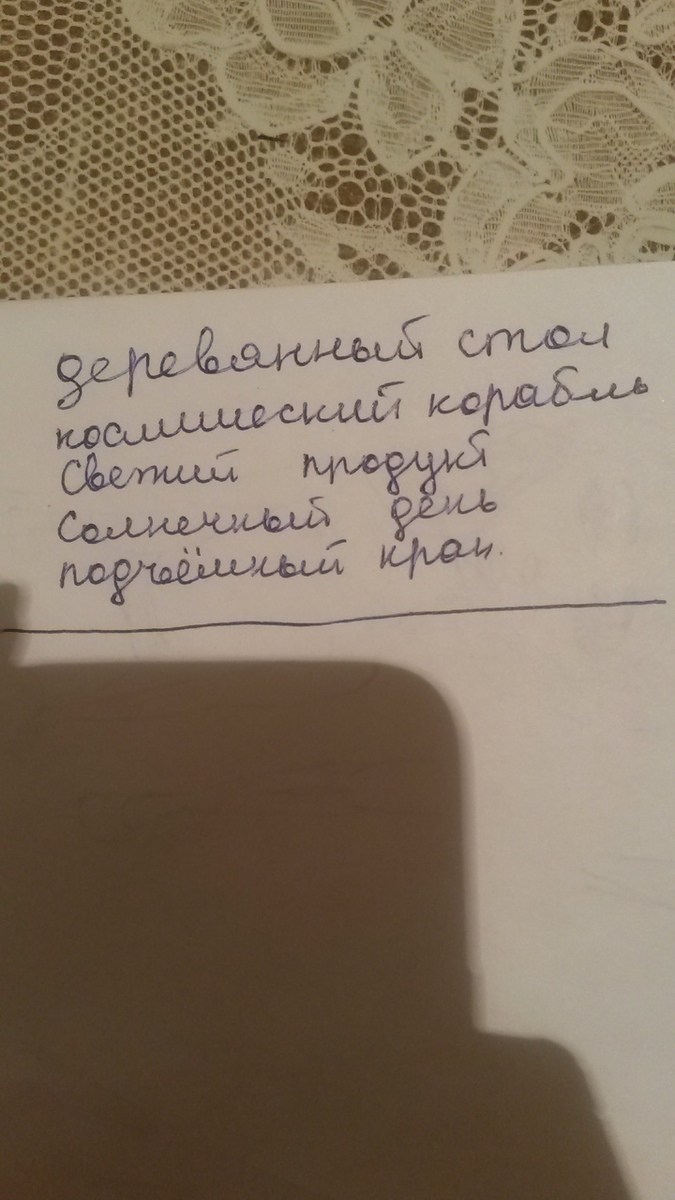 деревянный стол
космический корабль
Свежий продукт
Солнечный день
подъёмный кран.